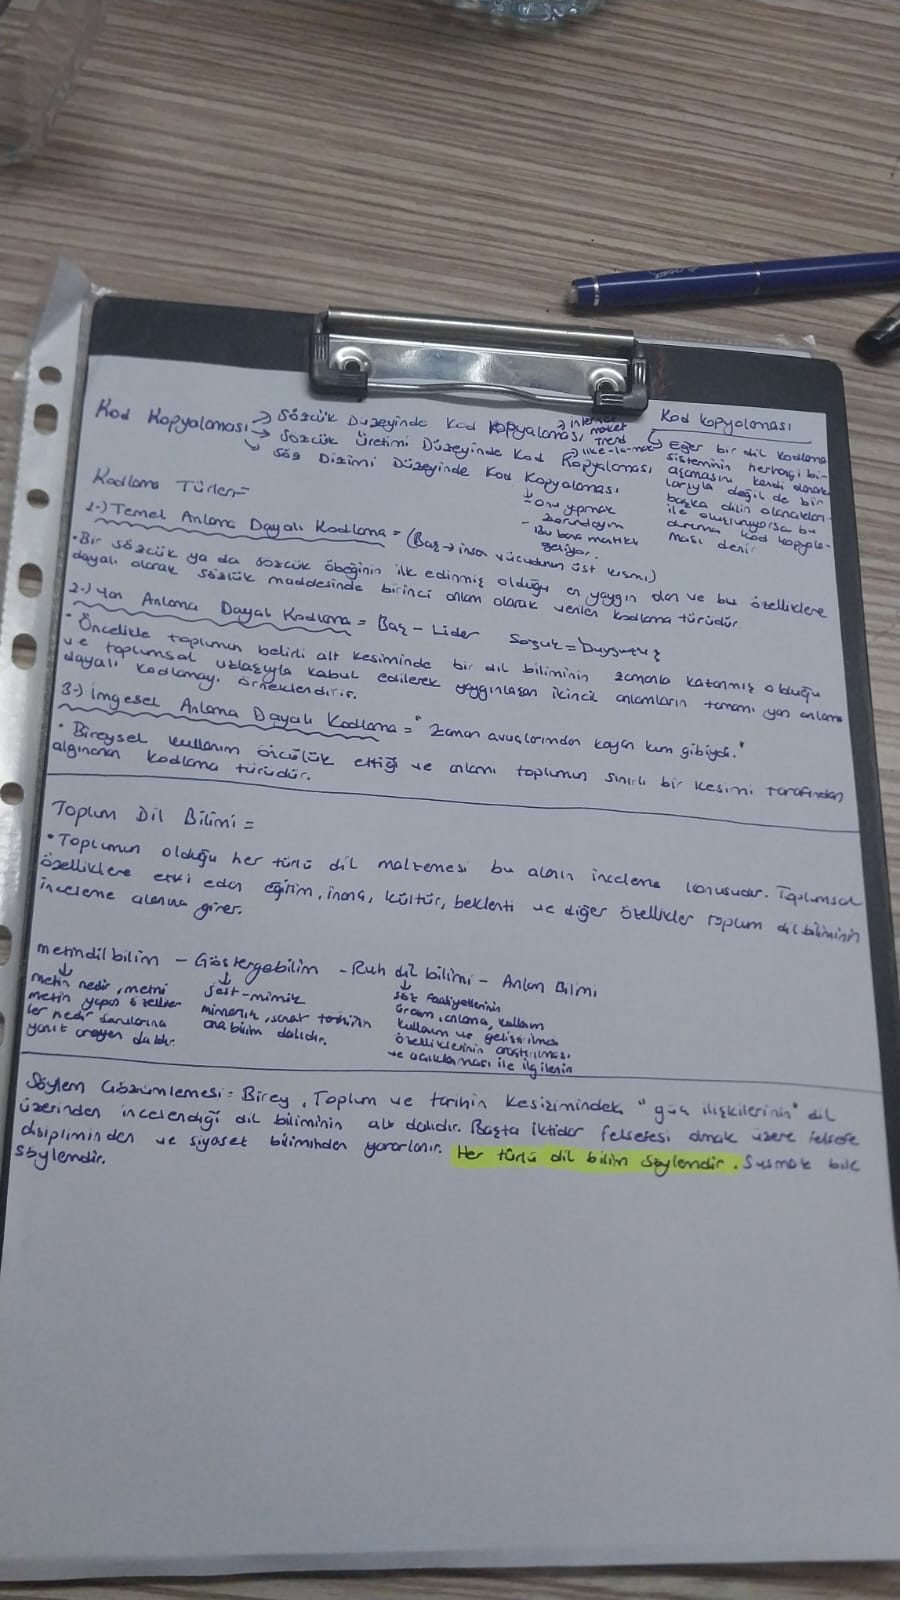 Kod Kopyalaması → Sözcük Düzeyinde Kod Kopyalaması → internet market Trend
→ Sözcük Üretimi Düzeyinde Kod Kopyalaması
→ Söz Dizimi Düzeyinde Kod Kopyalaması
- onu yapmak zorundayım
- Bu bana mantıklı geliyor.
Kod Kopyalaması
→ Eğer bir dil kodlama
sisteminin herhangi bi-
aşamasını kendi olanak-
larıyla değil de bir
başka dilin olanakları
ile oluşturuyorsa bu
duruma kod kopyala-
ması denir
Kodlama Türleri=
1-) Temel Anlama Dayalı Kodlama = (Baş → insan vücudunun üst kısmı)
• Bir sözcük ya da sözcük öbeğinin ilk edinmiş olduğu en yaygın olan ve bu özelliklere
dayalı olarak sözlük maddesinde birinci anlam olarak verilen kodlama türüdür.
2-) Yan Anlama Dayalı Kodlama = Baş - Lider Soğuk = Duygusuz
• Öncelikle toplumun belirli alt kesiminde bir dil biliminin zamanla katanmış olduğu
ve toplumsal uzlaşıyla kabul edilerek yaygınlaşan ikincil anlamların tamamı yan anlama
dayalı kodlamayı örneklendirir.
3-) İmgesel Anlama Dayalı Kodlama = "Zaman avuçlarımdan kayan kum gibiydi."
• Bireysel kullanım öncülük ettiği ve anlamı toplumun sınırlı bir kesimi tarafından
algınanan kodlama türüdür.
Toplum Dil Bilimi =
• Toplumun olduğu her türlü dil malzemesi bu alanın inceleme konusudur. Toplumsal
özelliklere etki eden eğitim, inanç, kültür, beklenti ve diğer özellikler toplum dil biliminin
inceleme alanına girer.
metindilbilim - Göstergebilim - Ruh dil bilimi - Anlam Bilimi
metin nedir, metni
metin yapan özellik
ler nedir sorularına
yanıt arayan daldır.
Jest-mimik
mimarlık, sanat tarihinin
ana bilim dalıdır.
söz faaliyetlerinin
üretim, anlama, kullanım
kullanım ve geliştirilmesi
özelliklerinin araştırılması
ve açıklaması ile ilgilenir
Söylem Çözümlemesi = Birey, Toplum ve tarihin kesişimindeki "güç ilişkilerinin" dil
üzerinden incelendiği dil biliminin alt dalıdır. Başta İktidar felsefesi olmak üzere felsefe
disipliminden ve siyaset biliminden yararlanır. Her türlü dil bilim söylemdir. Susmak bile
söylemdir.